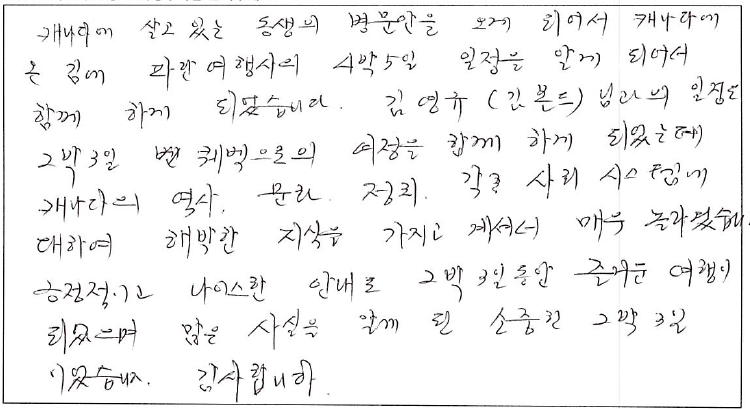 캐나다에 살고 있는 동생의 병문안을 오게 되어서 캐나다에
온 김에 파란여행사의 4박5일 일정을 알게 되어서
함께 하게 되었습니다. 김영규 (긴본드) 님과의 일정도
2박 3일 퀘벡으로의 여정을 함께 하게 되었는데
캐나다의 역사. 문화. 정치. 각종 사회 시스템에
대하여 해박한 지식을 가지고 계셔서 매우 놀라웠습니다.
긍정적이고 나이스한 안내로 2박 3일동안 즐거운 여행이
되었으며 많은 사실을 알게 된 소중한 2박 3일
이었습니다. 감사합니다